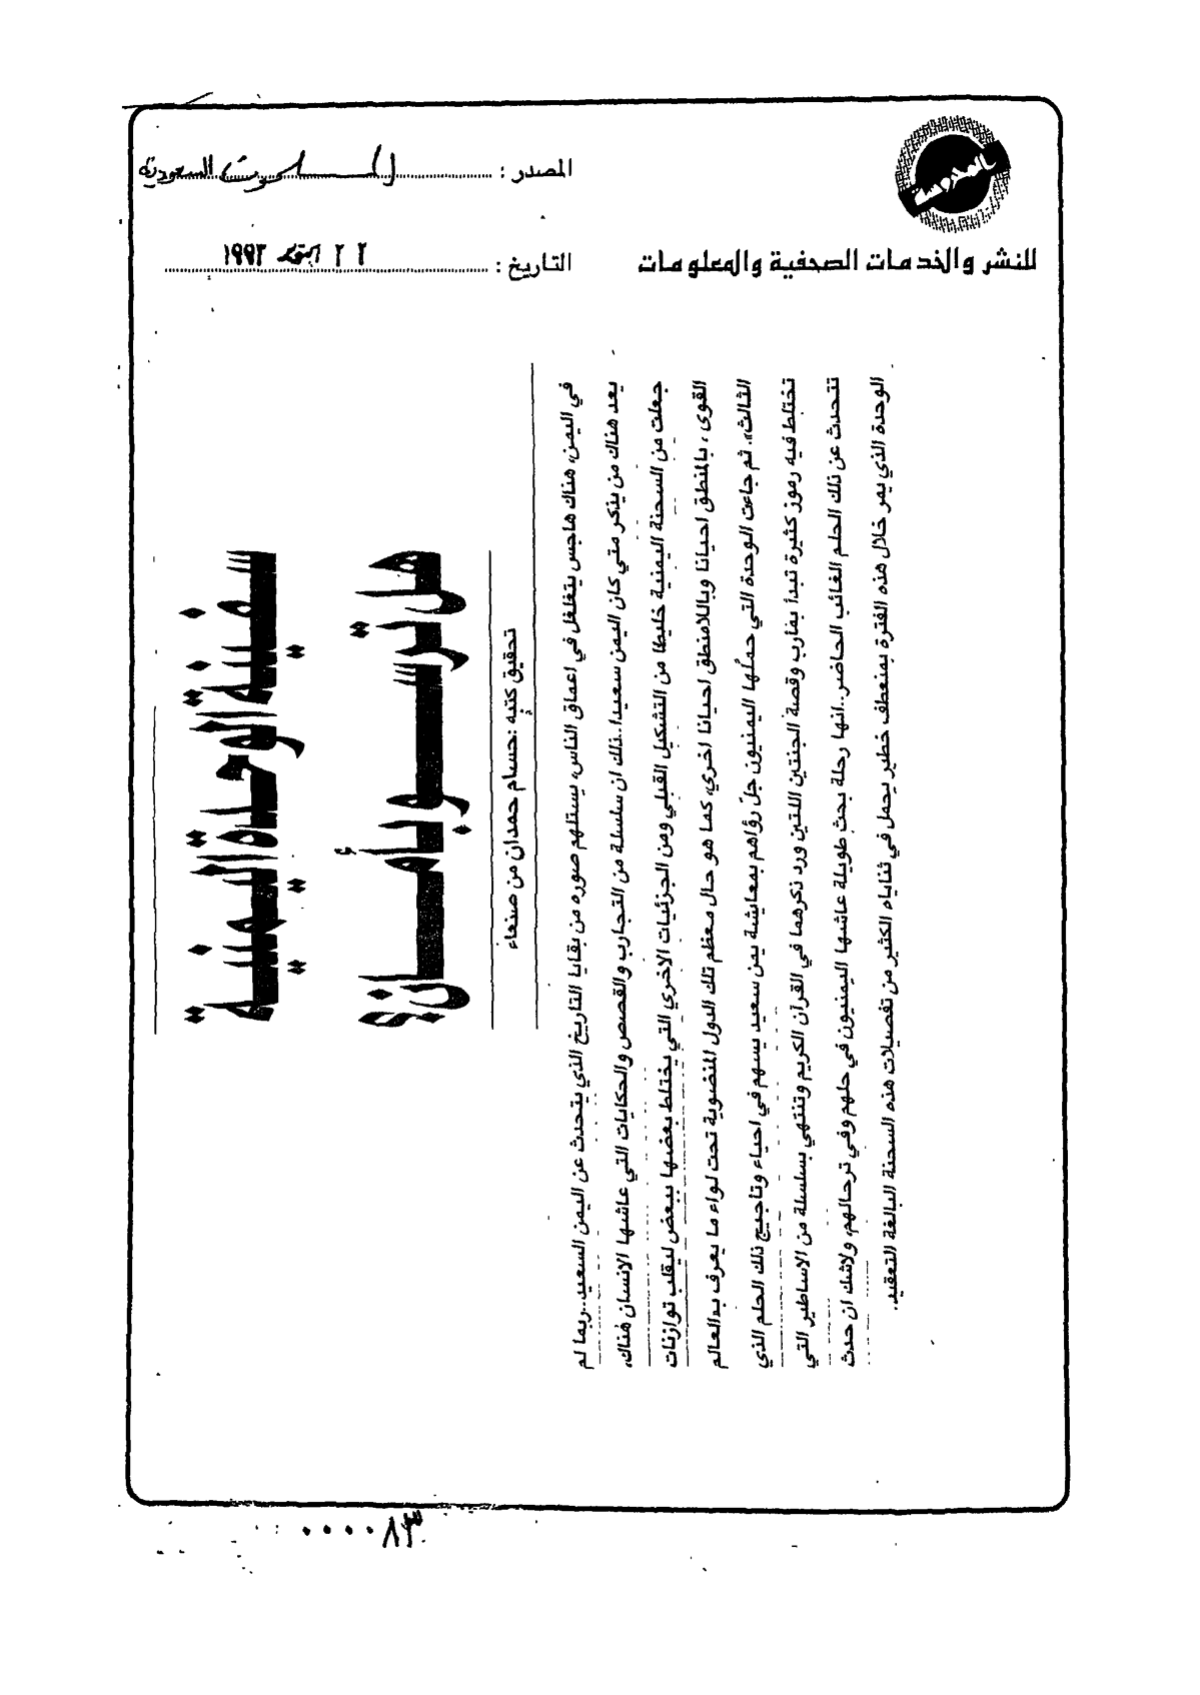 المصدر : المسلمون السعودية
للنشر والخدمات الصحفية والمعلومات
التاريخ : ٢٢ ١٩٩٣
سفينة الوحدة اليمنية
هل ترسو بأمان؟
تحقيق كتبه :حسام حمدان من صنعاء
في اليمن، هناك هاجس يتغلغل في اعماق الناس، يستلهم صوره من بقايا التاريخ الذي يتحدث عن اليمن السعيد..ربما لم
يعد هناك من ينكر متي كان اليمن سعيدا..ذلك ان سلسلة من التجارب والقصص والحكايات التي عاشها الانسان هناك،
جعلت من السحنة اليمنية خليطا من التشكيل القبلي ومن الجزئيات الاخري التي يختلط بعضها ببعض ليقلب توازنات
القوى ، بالمنطق احيانا وباللامنطق احيانا اخري، كما هو حال معظم تلك الدول المنضوية تحت لواء ما يعرف بـ«العالم
الثالث». ثم جاءت الوحدة التي حملها اليمنيون جلّ رؤاهم بمعايشة يمن سعيد يسهم في احياء وتاجيج ذلك الحلم الذي
تختلط فيه رموز كثيرة تبدأ بمارب وقصة الجنتين اللتين ورد ذكرهما في القرآن الكريم وتنتهي بسلسلة من الاساطير التي
تتحدث عن ذلك الحلم الغائب الحاضر..انها رحلة بحث طويلة عاشها اليمنيون في حلهم وفي ترحالهم، ولاشك ان حدث
الوحدة الذي يمر خلال هذه الفترة بمنعطف خطير يحمل في ثناياه الكثير من تفصيلات هذه السحنة البالغة التعقيد.
٠٠٠٠٨٣